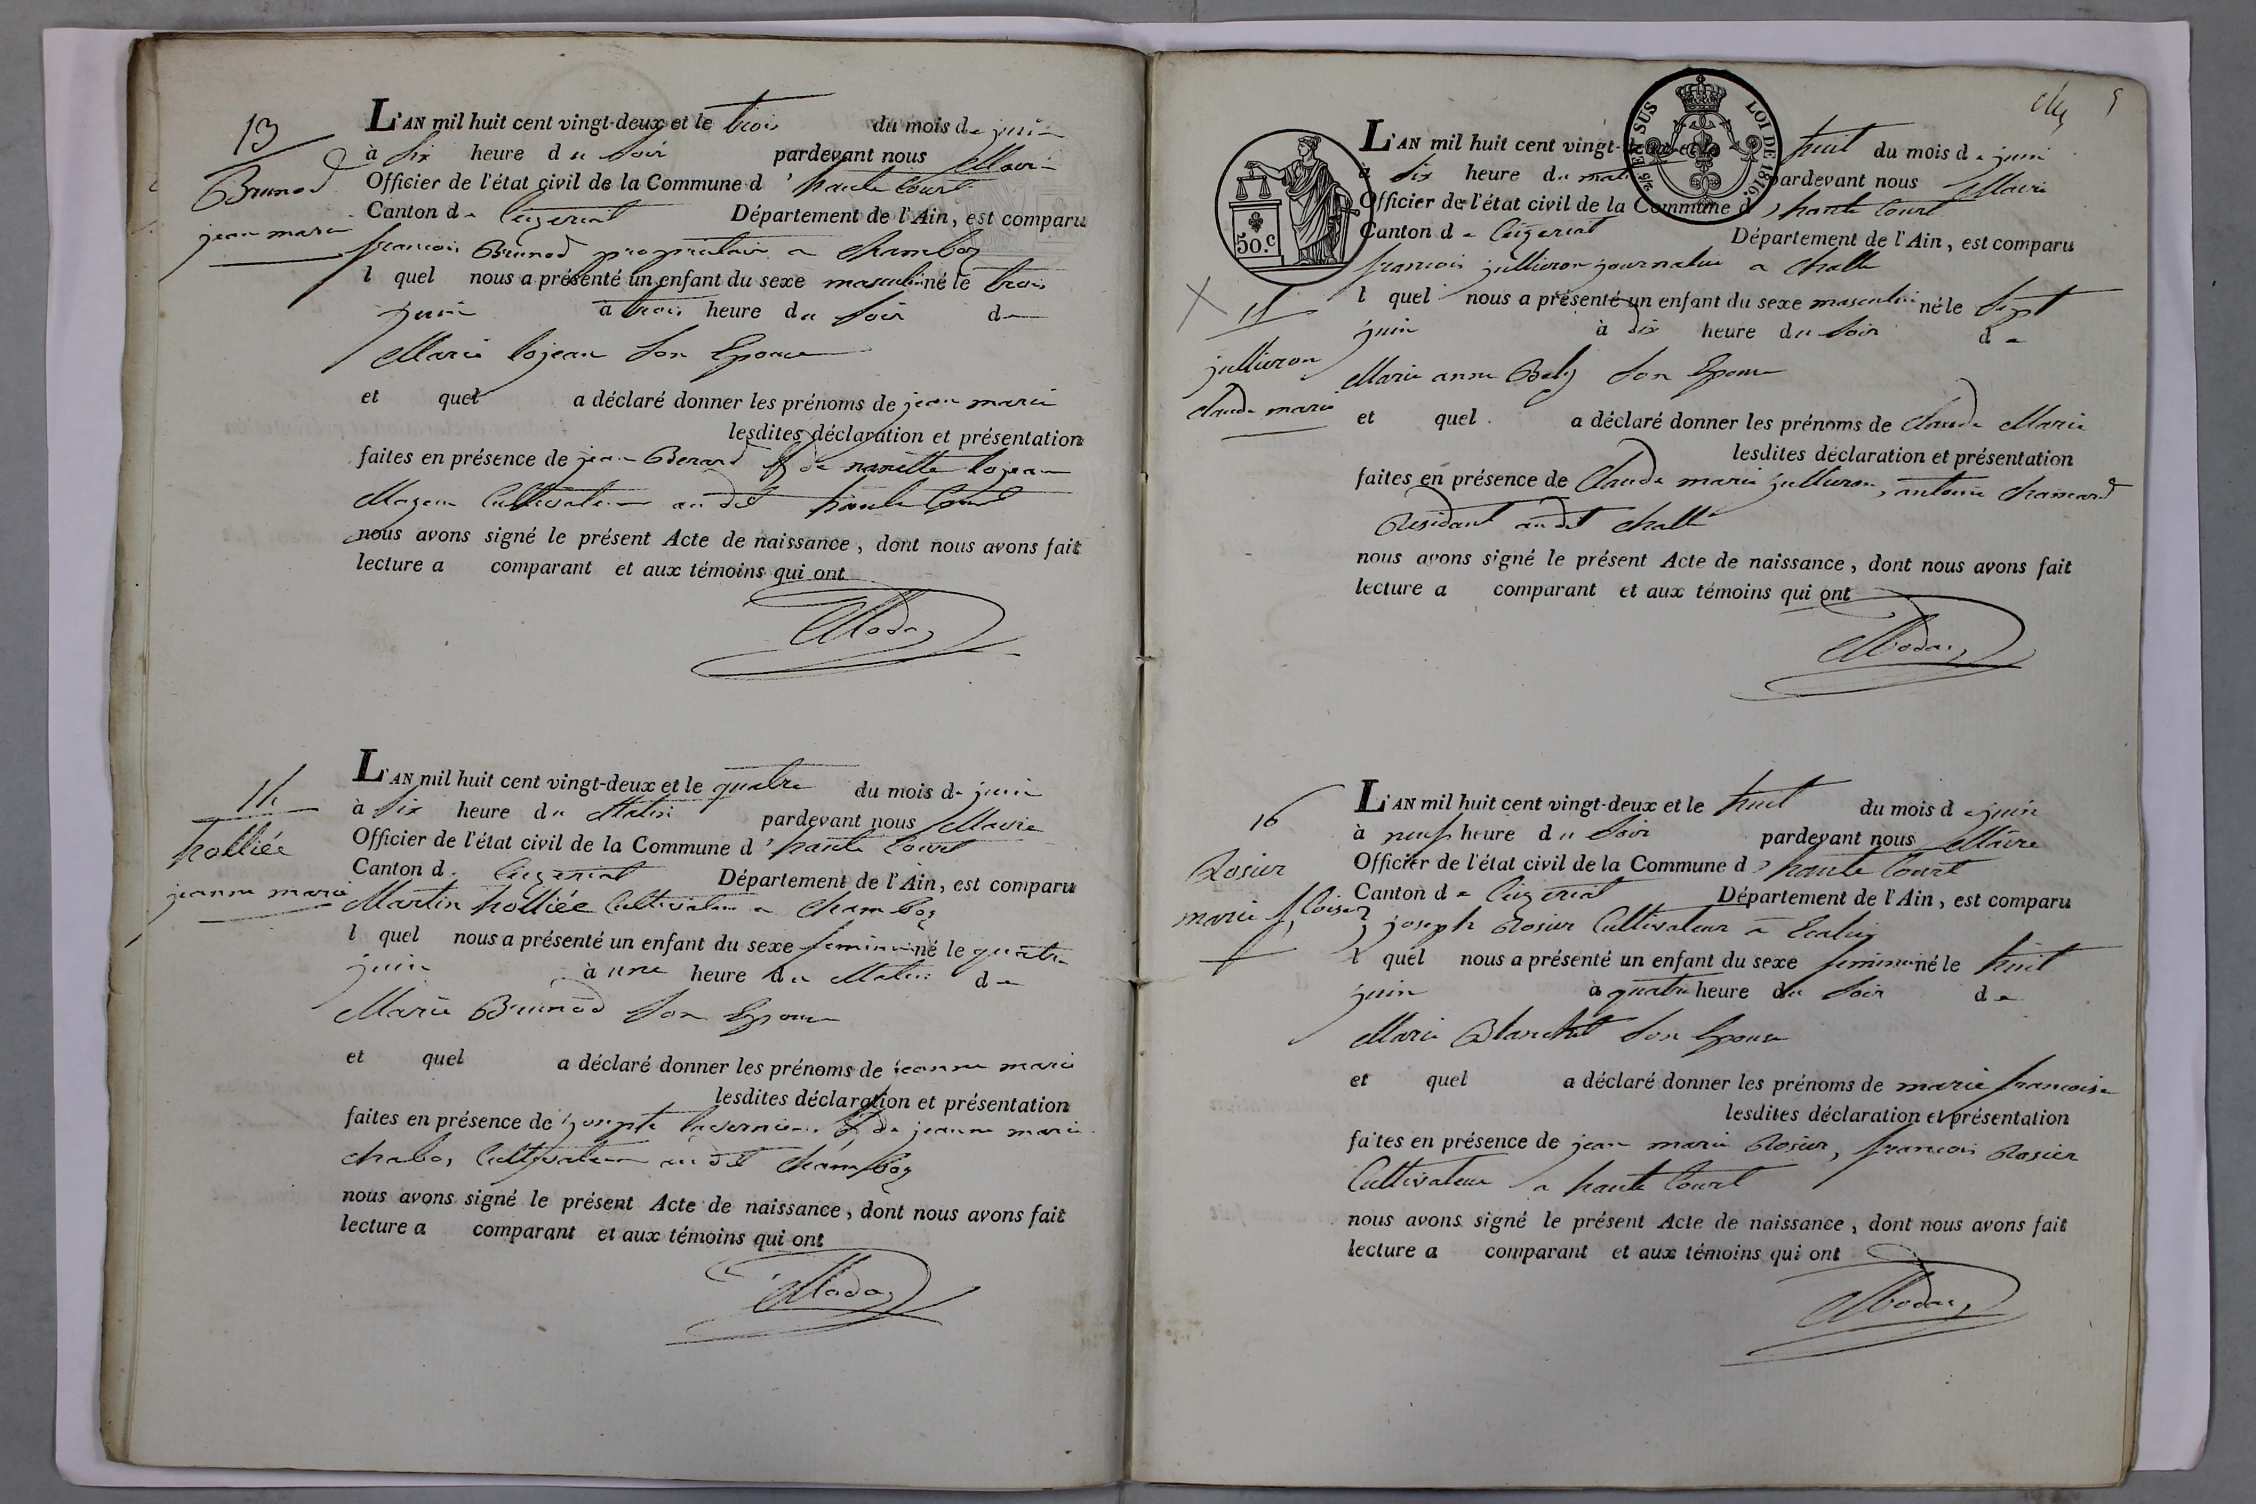 13
Brunod
jean marie
L'AN mil huit cent vingt-deux et le trois du mois de juin
à six heure du soir pardevant nous Maire
Officier de l'état civil de la Commune d'haute Court
Canton de Ceyzeriat Département de l'Ain, est comparu
francois Brunod proprietaire a Chamboz
l quel nous a présenté un enfant du sexe masculin né le trois
juin à trois heure du soir de
Marie lojean son Epouse
et quel a déclaré donner les prénoms de jean marie
lesdites déclaration et présentation
faites en présence de jean Berard & de lojean
Cultivateur au dit haute Court
nous avons signé le présent Acte de naissance, dont nous avons fait
lecture a comparant et aux témoins qui ont
14
holliée
jeanne marie
L'AN mil huit cent vingt-deux et le quatre du mois de juin
à six heure du Matin pardevant nous Maire
Officier de l'état civil de la Commune d'haute Court
Canton de Ceyzeriat Département de l'Ain, est comparu
Martin holliée Cultivateur a Chamboz
l quel nous a présenté un enfant du sexe feminin né le quatre
juin à une heure du Matin de
Marie Brunod son Epouse
et quel a déclaré donner les prénoms de jeanne marie
lesdites déclaration et présentation
faites en présence de & de jeanne marie
Cultivateur au dit Chamboz
nous avons signé le présent Acte de naissance, dont nous avons fait
lecture a comparant et aux témoins qui ont
5
50.c
EN SUS
LOI DE 1816.
15
jullieron
Claude marie
L'AN mil huit cent vingt-deux et le huit du mois de juin
à six heure du matin pardevant nous Maire
Officier de l'état civil de la Commune d'haute Court
Canton de Ceyzeriat Département de l'Ain, est comparu
francois jullieron journalier a Challe
l quel nous a présenté un enfant du sexe masculin né le sept
juin à dix heure du soir de
Marie anne son Epouse
et quel a déclaré donner les prénoms de Claude Marie
lesdites déclaration et présentation
faites en présence de Claude marie jullieron, antoine Chanard
Residant au dit Challe
nous avons signé le présent Acte de naissance, dont nous avons fait
lecture a comparant et aux témoins qui ont
16
Rosier
marie f,coise
L'AN mil huit cent vingt-deux et le huit du mois de juin
à neuf heure du soir pardevant nous Maire
Officier de l'état civil de la Commune d'haute Court
Canton de Ceyzeriat Département de l'Ain, est comparu
joseph Rosier Cultivateur a
l quel nous a présenté un enfant du sexe feminin né le huit
juin à quatre heure du soir de
Marie Blanchet son Epouse
et quel a déclaré donner les prénoms de marie francoise
lesdites déclaration et présentation
faites en présence de jean marie Rosier, francois Rosier
Cultivateur a haute Court
nous avons signé le présent Acte de naissance, dont nous avons fait
lecture a comparant et aux témoins qui ont